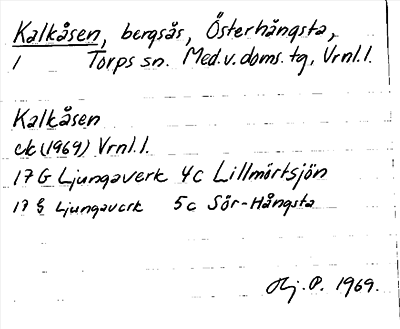 Kalkåsen, bergsås, Österhångsta,
1 Torps sn. Med.v.doms.tg, Vrnl.l.
Kalkåsen
ek (1969) Vrnl.l.
17 G Ljungaverk 4c Lillmörtsjön
17 G Ljungaverk 5c Sör-Hångsta
Hj.P. 1969.